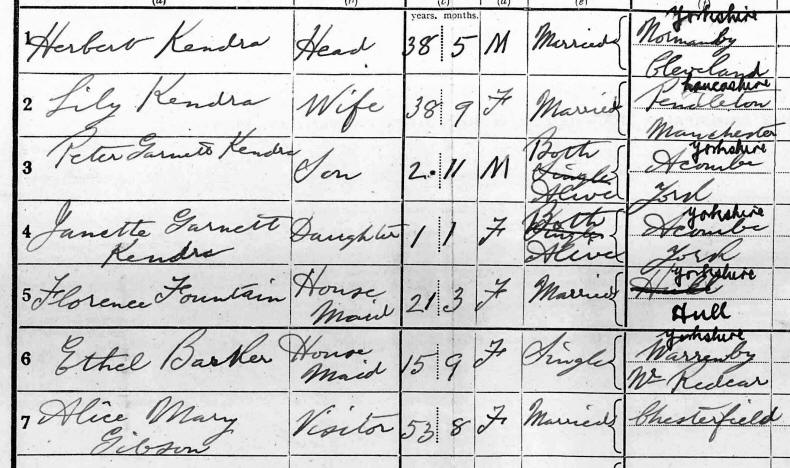 (a) (b) (c) (d) (e)
years. months.
1 Herbert Kendra Head 38 5 M Married Yorkshire
Normanby
Cleveland
2 Lily Kendra Wife 38 9 F Married Lancashire
Pendleton
Manchester
3 Peter Garnett Kendra Son 2 11 M Both Yorkshire
Single Acombe
Alive York
4 Janette Garnett Daughter 1 1 F Both Yorkshire
Kendra Single Acombe
Alive York
5 Florence Fountain House 21 3 F Married Yorkshire
Maid Hull
Hull
6 Ethel Barker House 15 9 F Single Yorkshire
Maid Warrenby
Nr Redcar
7 Alice Mary Visitor 53 8 F Married Chesterfield
Gibson